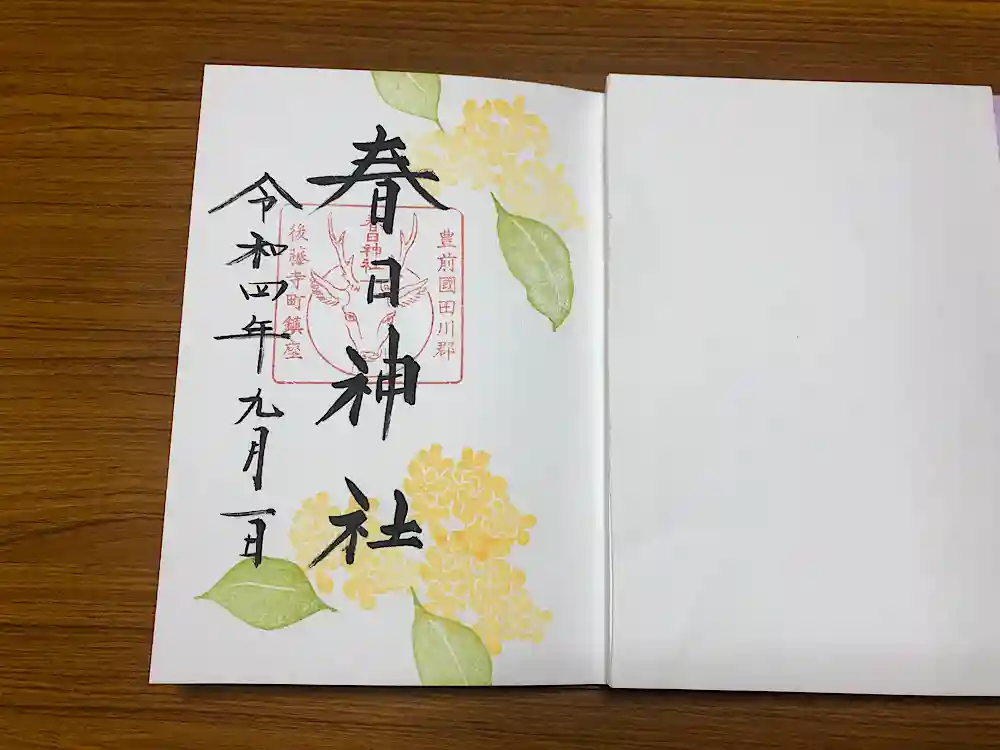 春日神社
豊前國田川郡
春日神社
後藤寺町鎮座
令和四年九月一日